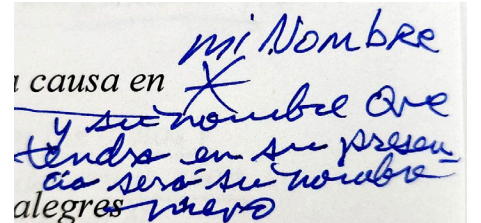 mi Nombre
a causa en X
y su nombre que
tendra en su presen-
cia sera su nombre
alegres nuevo